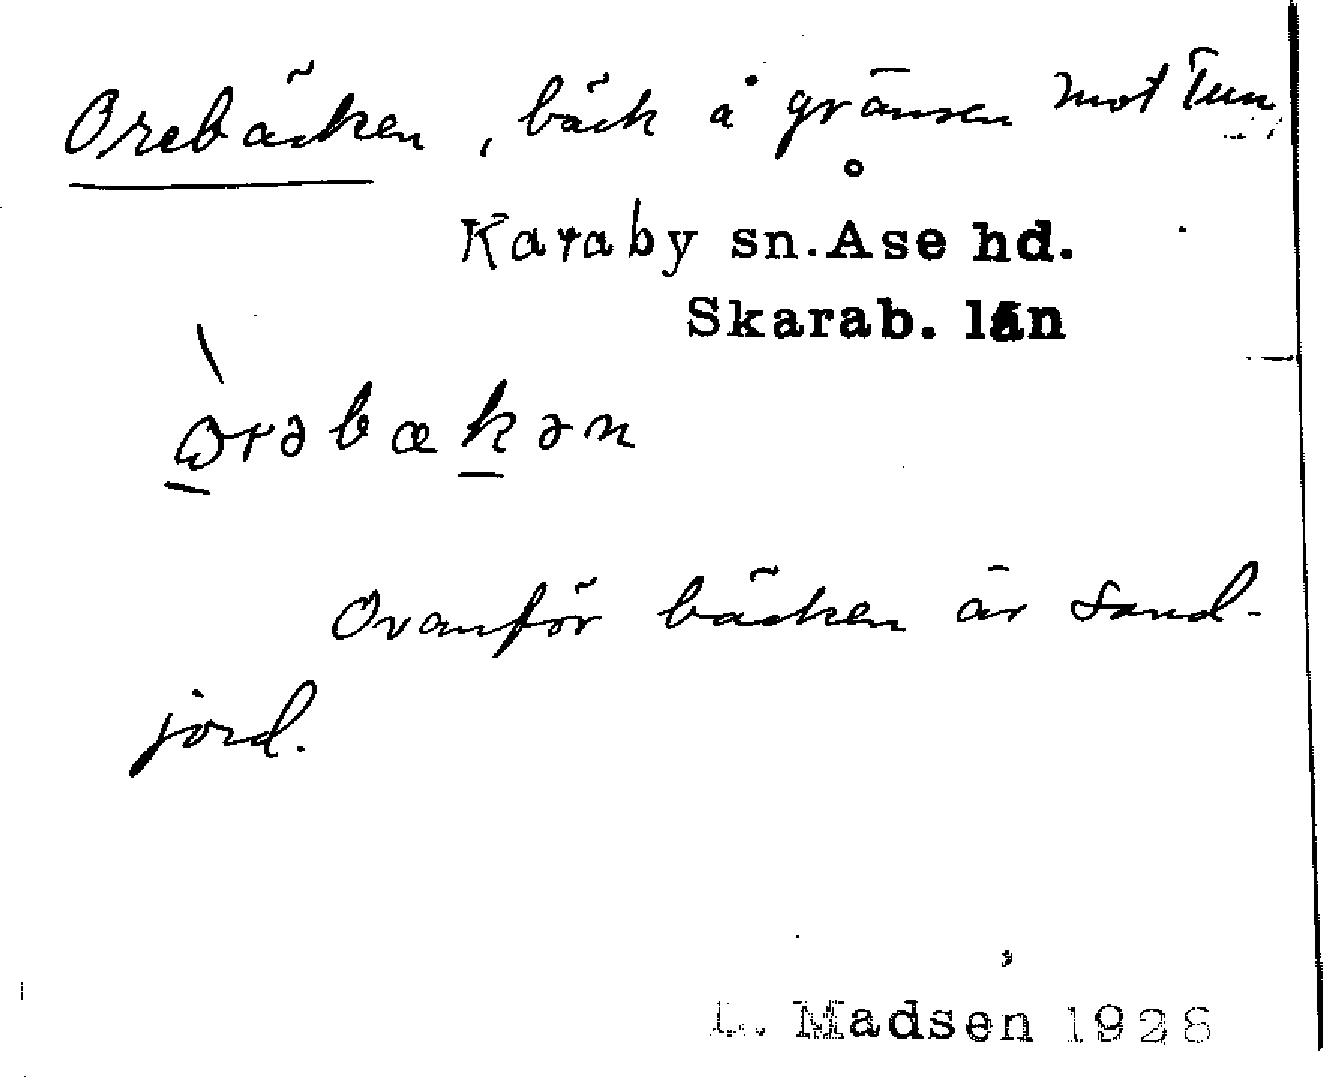 Orebäcken, bäck å gränsen mot Tun,
Karaby sn. Åse hd.
Skarab. län
òrəbækən
Ovanför bäcken är sand-
jord.
L. Madsen 1928